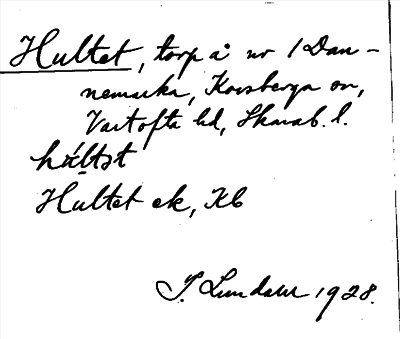 Hultet, torp å nr 1 Dan-
nemarka, Korsberga sn,
Vartofta hd, Skarab. l.
hul̯tət
Hultet ek, Kb
Lundahl 1928.